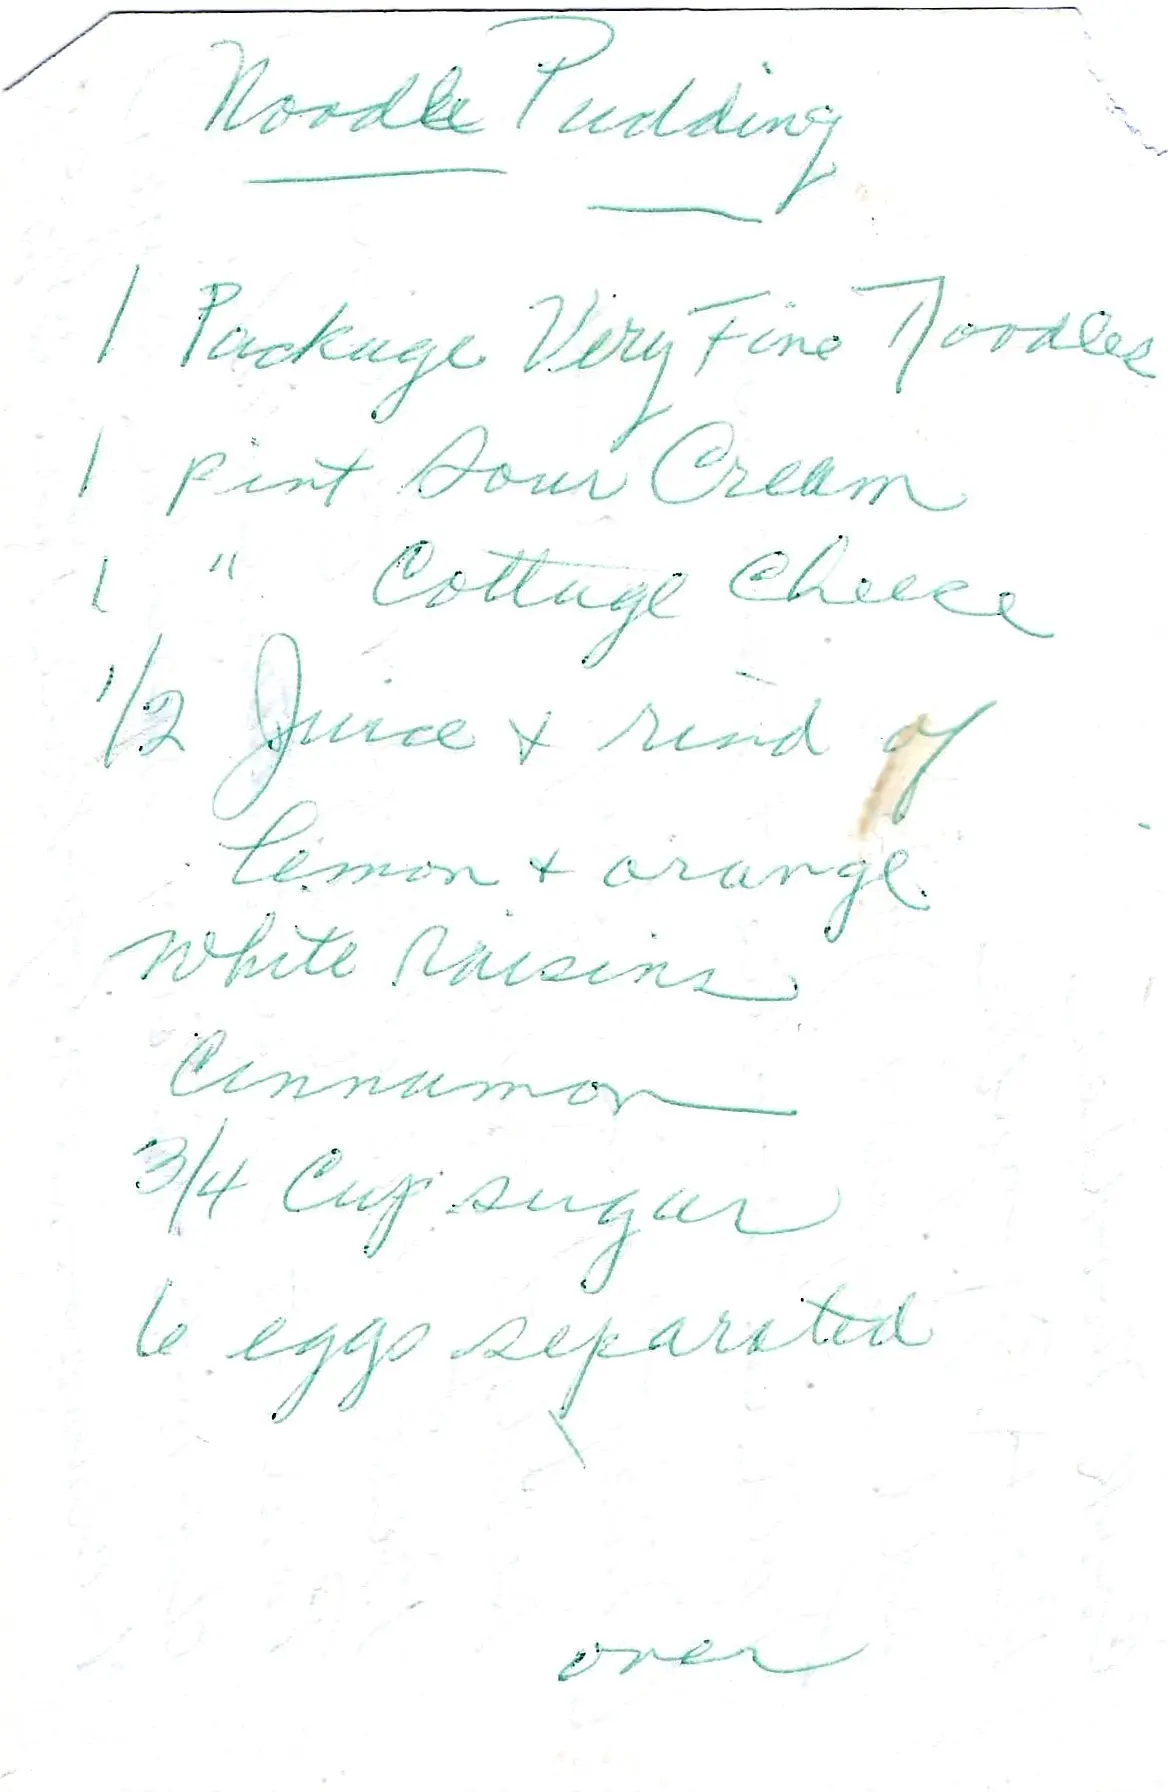 Noodle Pudding
1 Package Very Fine Noodles
1 pint Sour Cream
1 " Cottage Cheese
1/2 Juice + rind of
lemon + orange
White Raisins
Cinnamon
3/4 Cup sugar
6 eggs separated
over